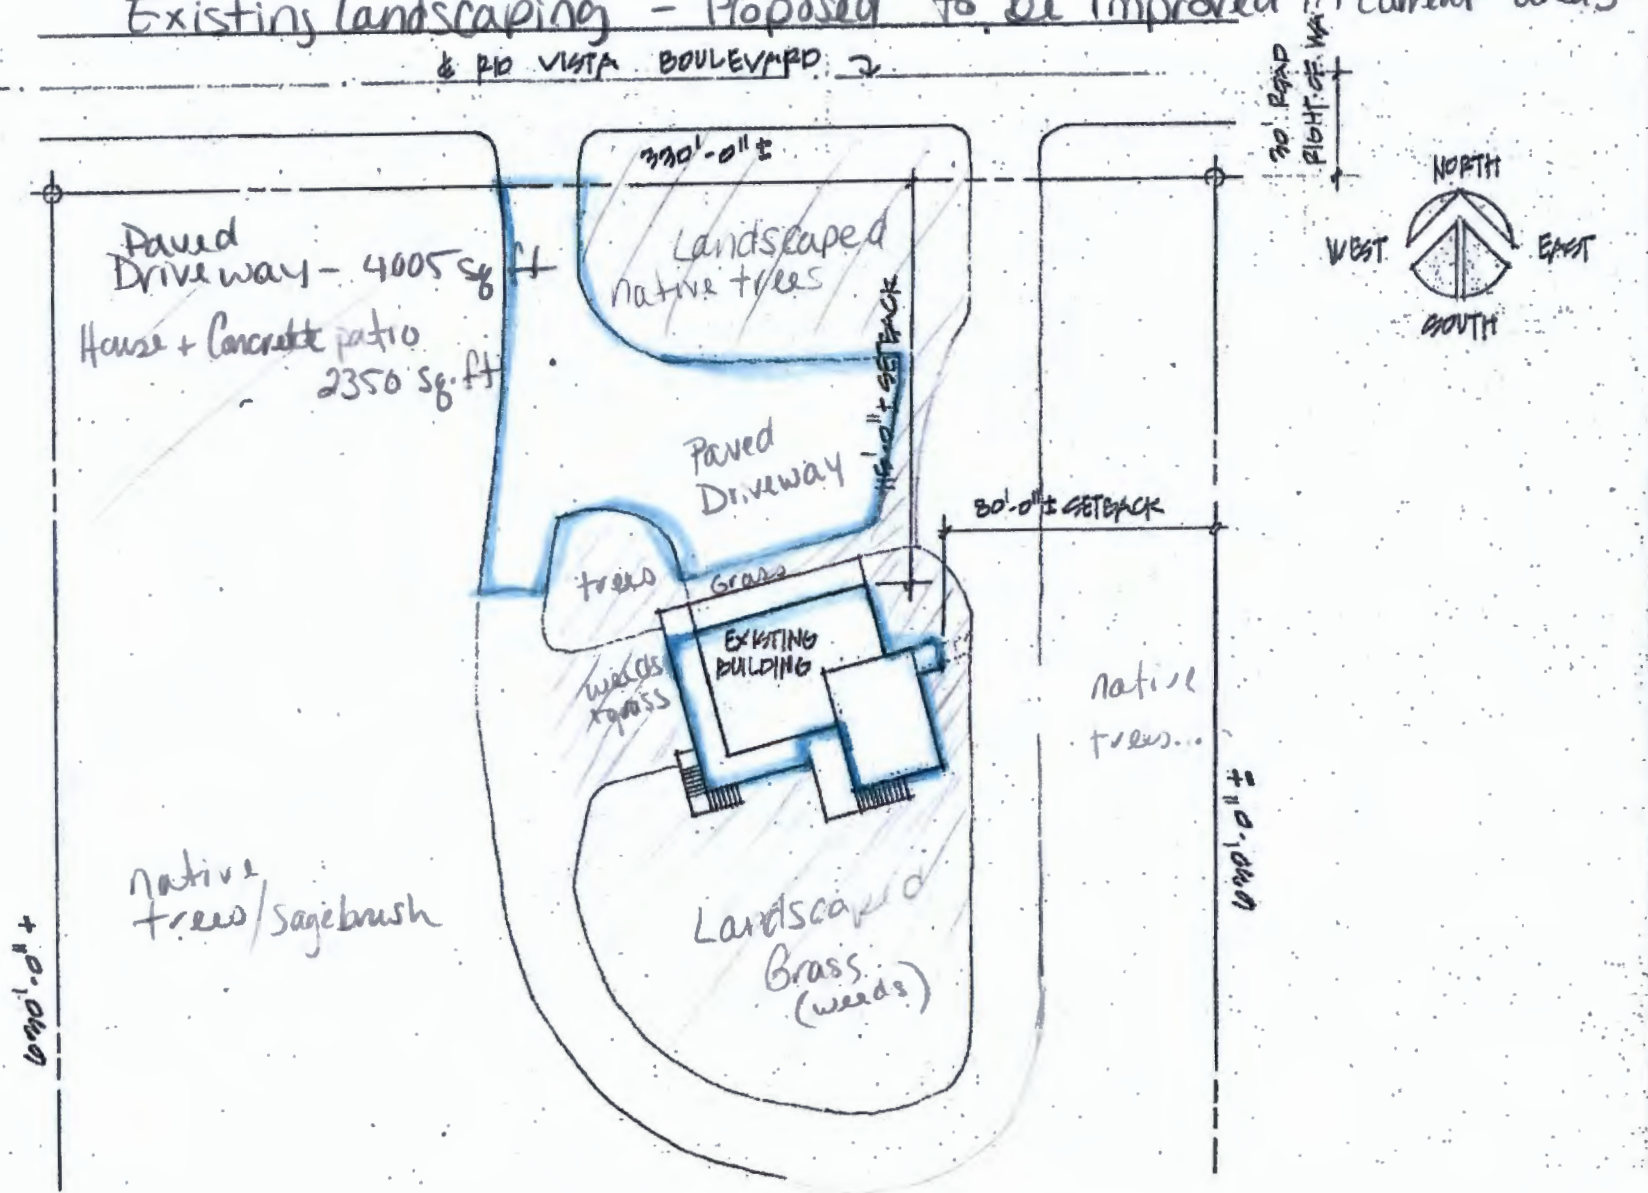 Existing Landscaping - Proposed to be improved
℄ RIO VISTA BOULEVARD
30' ROAD
RIGHT OF WAY
330'-0" ±
NORTH
WEST
EAST
SOUTH
Paved
Driveway - 4005 sq ft
House + Concrete patio
2350 sq. ft
Landscaped
native trees
115'-0" ± SETBACK
Paved
Driveway
80'-0" ± SETBACK
trees
Grass
EXISTING
BUILDING
weeds
+grass
native
trees...
660'-0" ±
native
trees/sagebrush
660'-0" ±
Landscaped
Grass
(weeds)